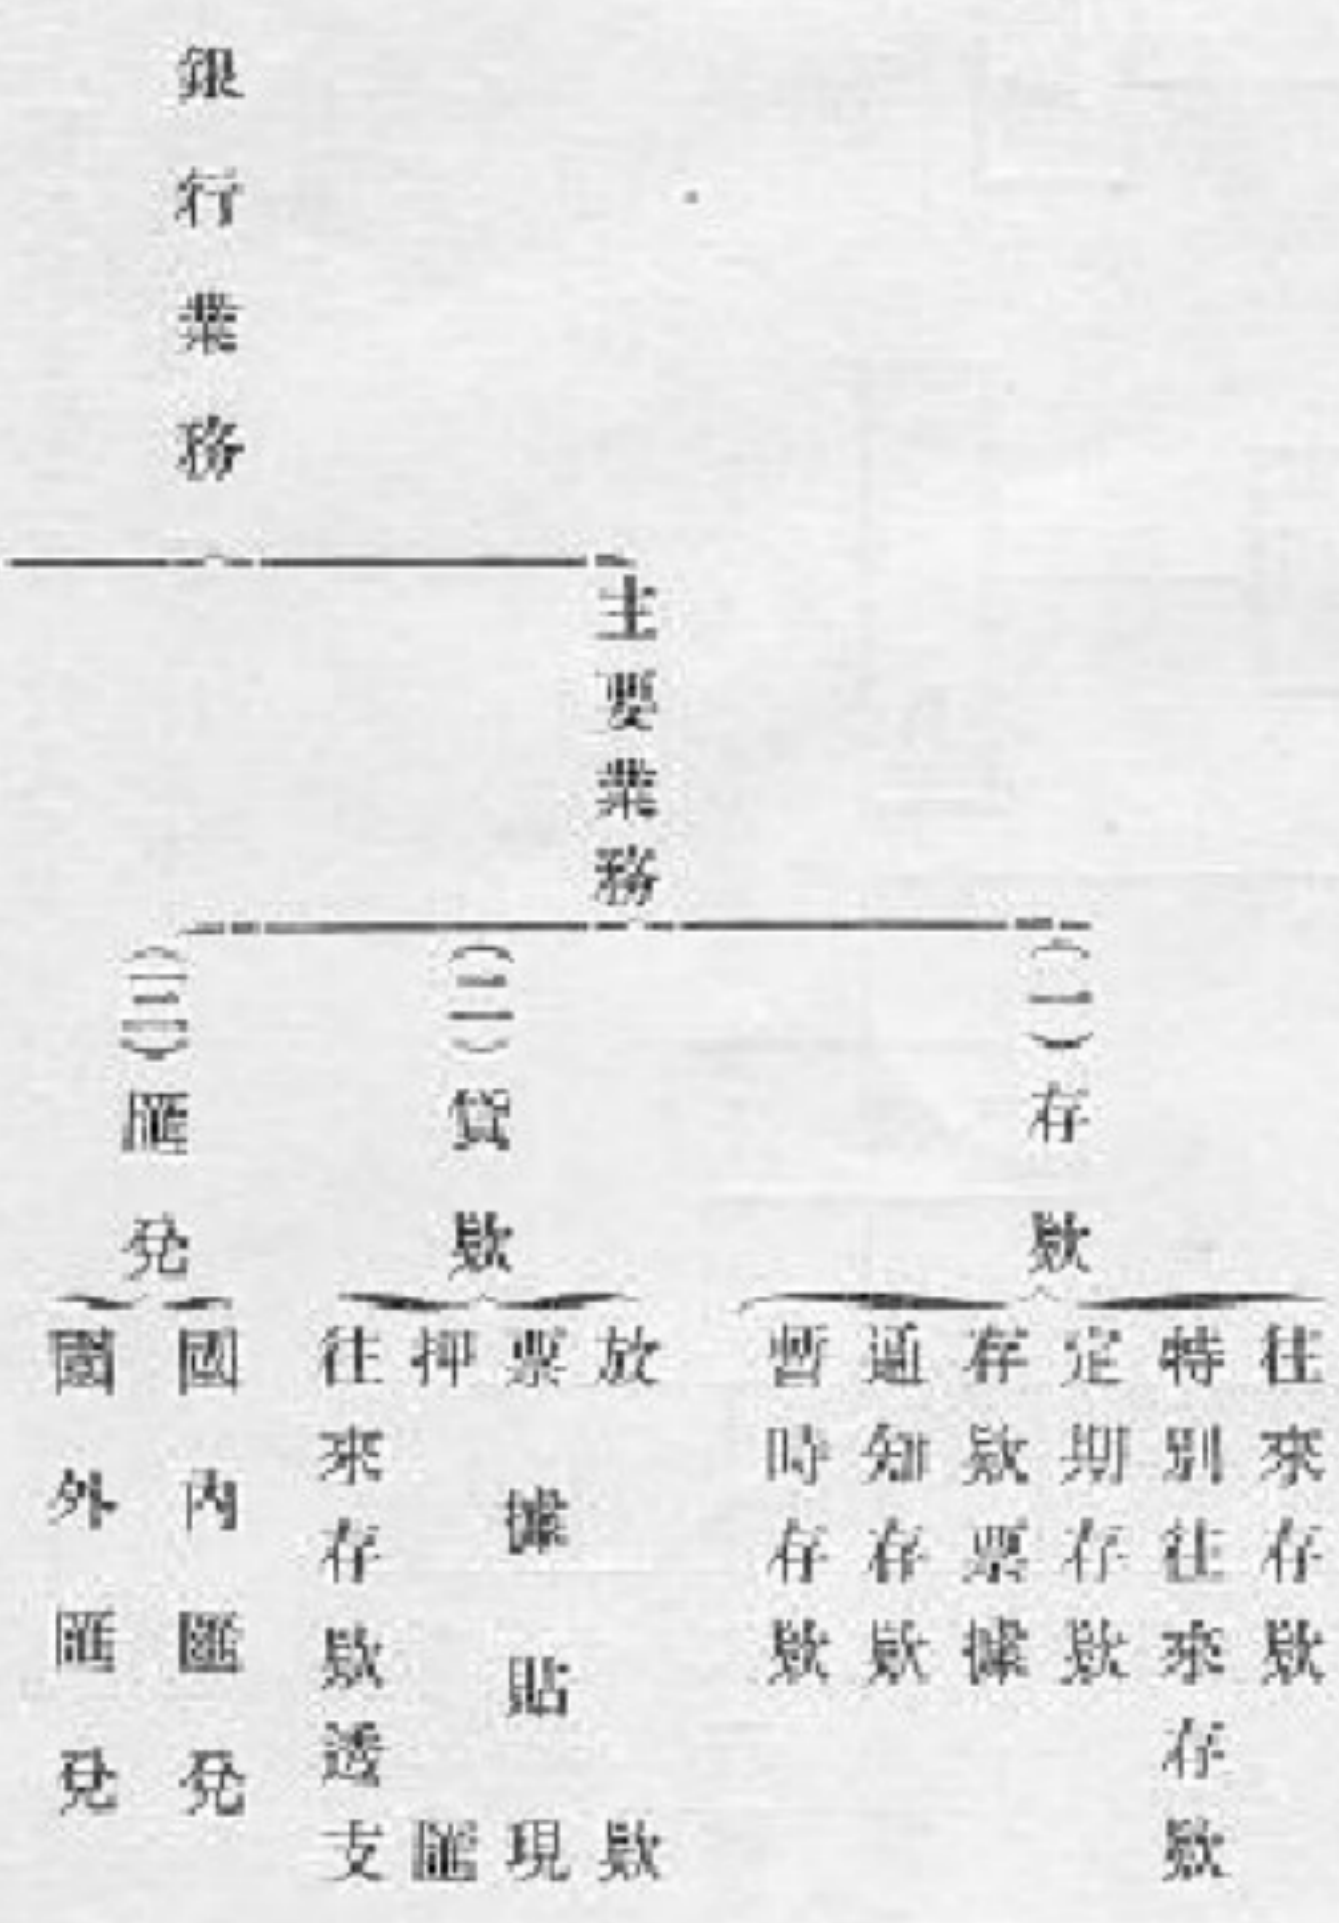 銀行業務
主要業務
(一)存欵
往來存欵
特別往來存欵
定期存欵
存欵票據
通知存欵
暫時存欵
(二)貸欵
放欵
票據貼現
押匯
往來存欵透支
(三)匯兌
國內匯兌
國外匯兌